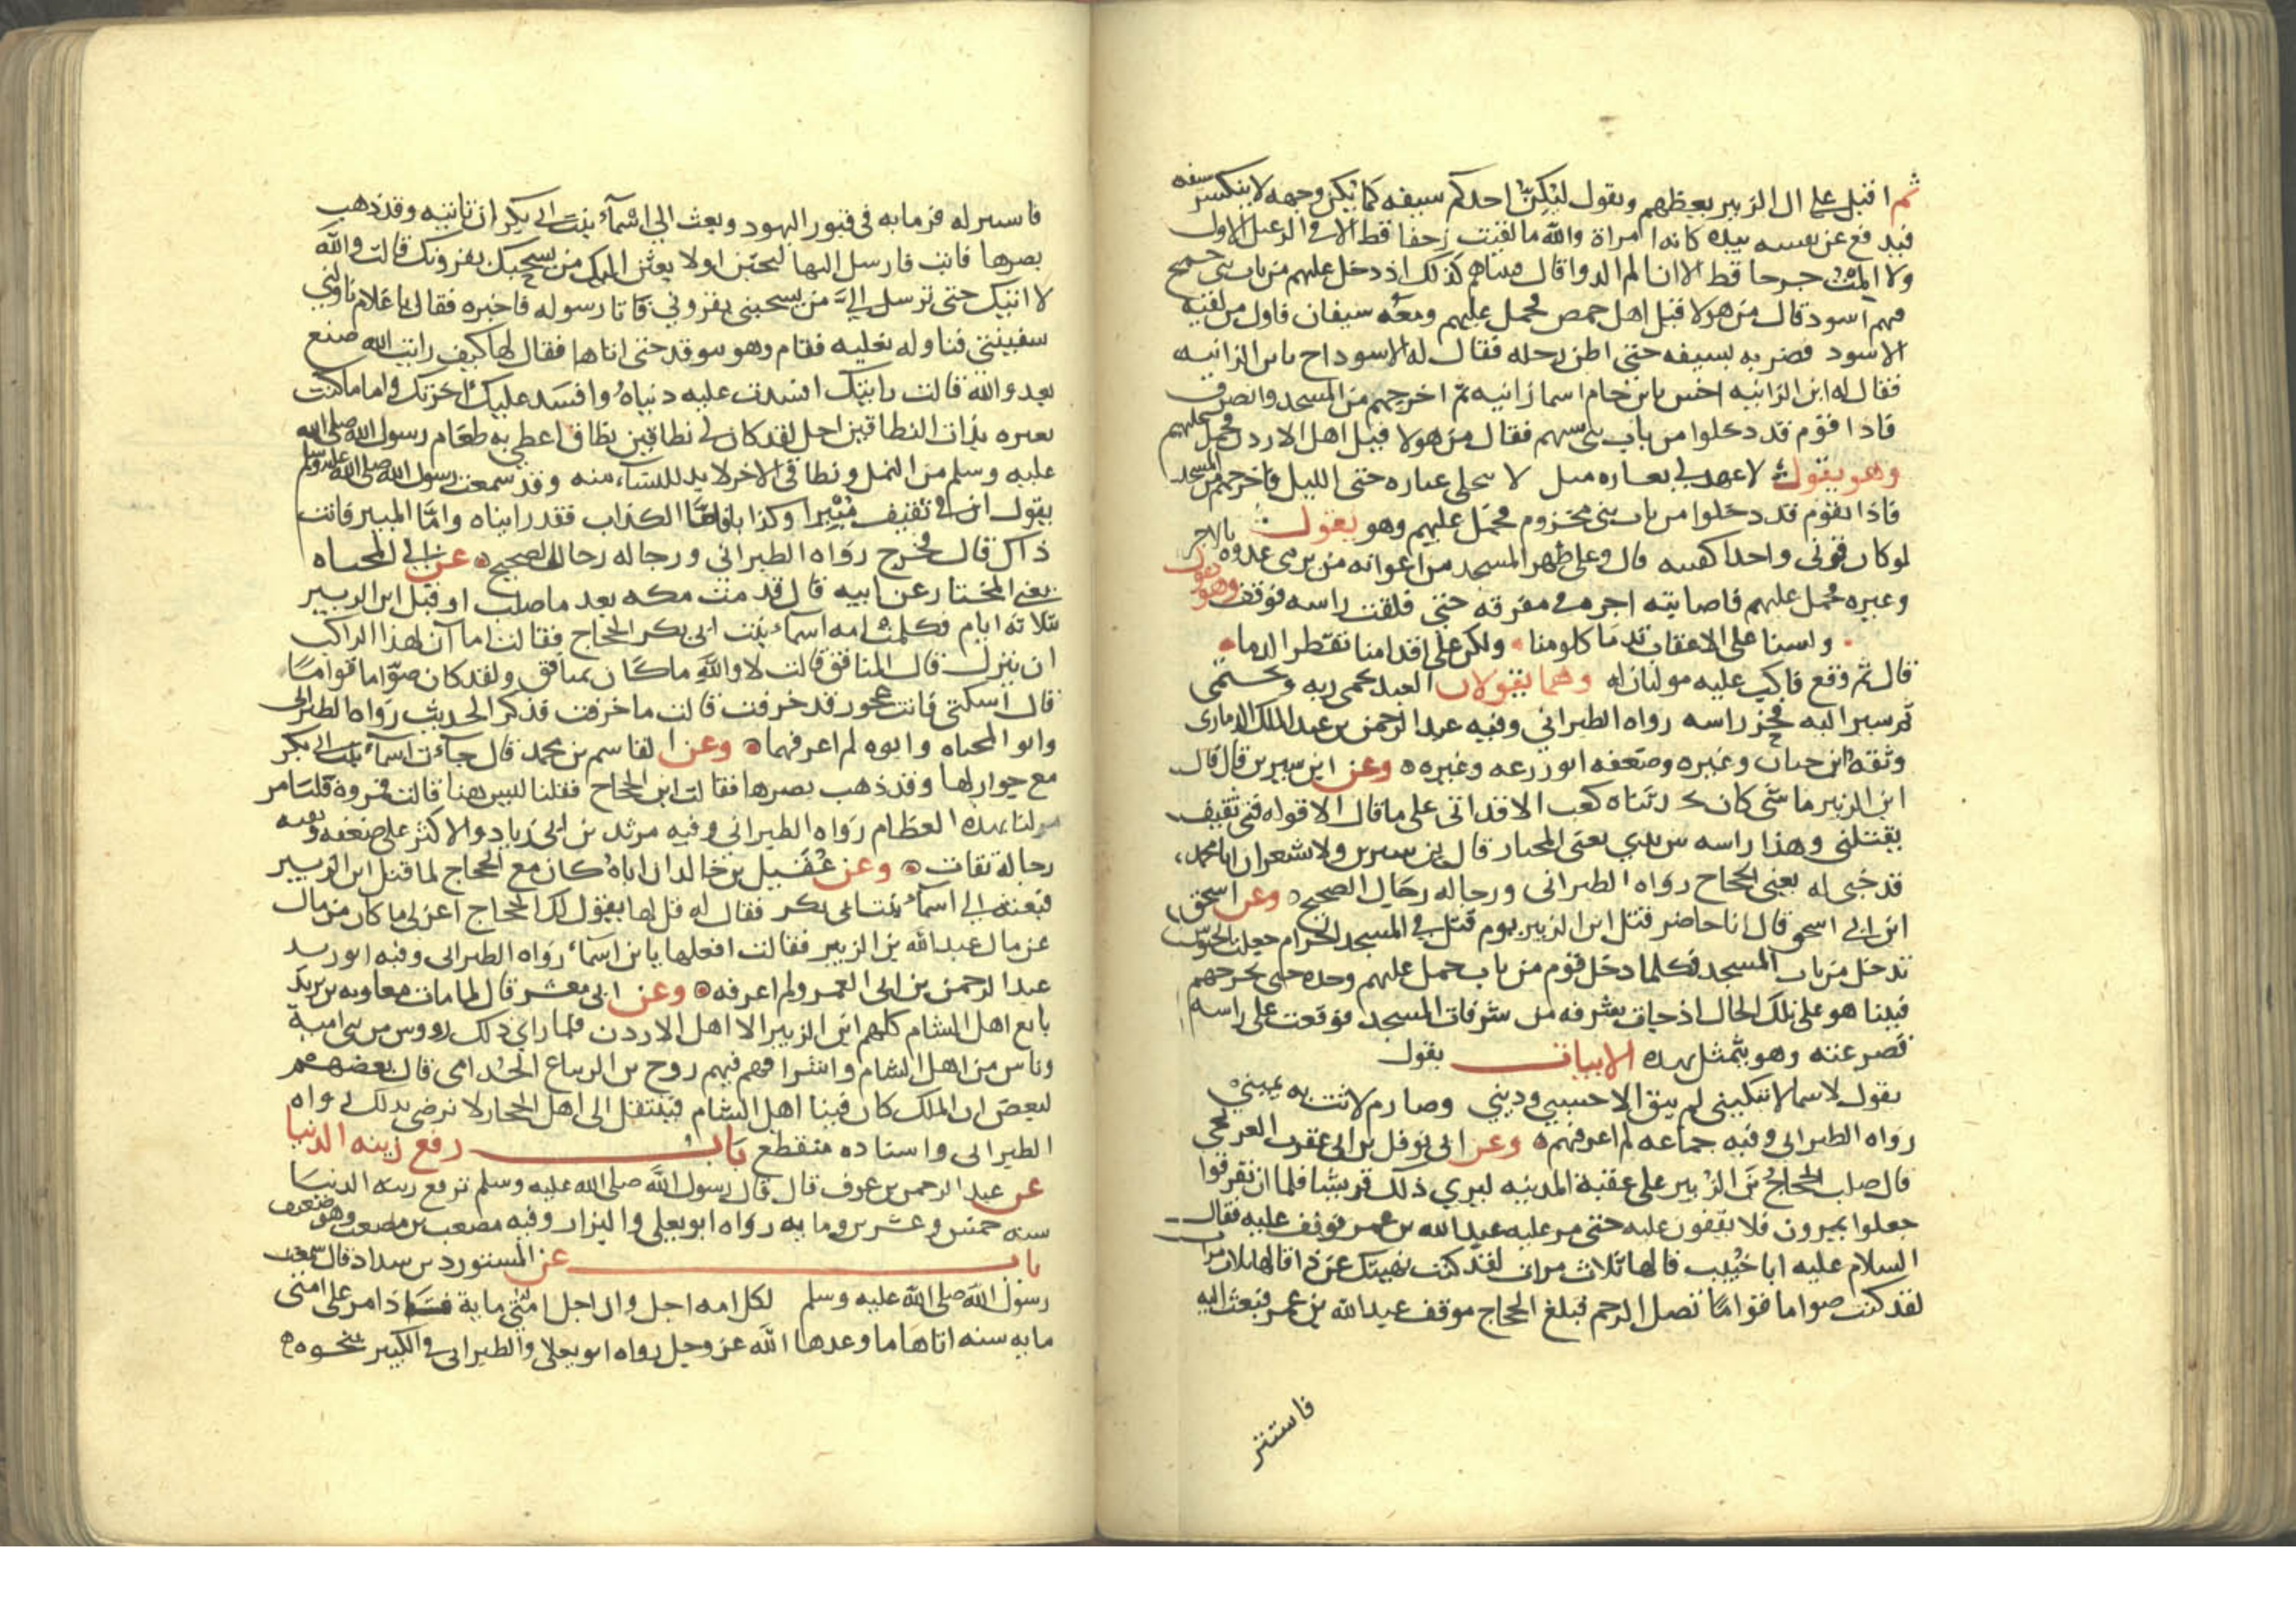 ثم اقبل على ال الزبير يعظهم ويقول ليكن احدكم سيفه كما يكن وجهه لا ينكسر سيفه
فيدفع عن نفسه بيده كانه امراة والله ما لقيت زحفا قط الا في الرعيل الاول
ولا المت جرحا قط الا ان الم الدوا قال فبيناهم كذلك اذ دخل عليهم من باب بني جمح
فيهم اسود قال من هولا قيل اهل حمص فحمل عليهم ومعه سيفان فاول من لقيه
الاسود فضربه بسيفه حتى اطن رجله فقال له الاسود اح يا بن الزانيه
فقال له ابن الزانيه اخس يا بن حام اسما زانيه ثم اخرجهم من المسجد وانصرف
فاذا قوم قد دخلوا من باب بني سهم فقال من هولا قيل اهل الاردن فحمل عليهم
وهو يقول لا عهد لي بغاره مثل لا ينجلي غباره حتى الليل فاخرجهم من المسجد
فاذا بقوم قد دخلوا من باب بني مخزوم فحمل عليهم وهو يقول
لو كان قرني واحدا كفيته قال وعلى ظهر المسجد من اعوانه من يرمي عدوه بالاجر
وغيره فحمل عليهم فاصابته اجره في مفرقه حتى فلقت راسه فوقف وهو يقول
ولسنا على الاعقاب تدما كلومنا ولكن على اقدامنا تقطر الدما
قال ثم وقع فاكب عليه موليان له وهما يقولان العبد يحمي ربه ويحتمي
ثم سير اليه فحز راسه رواه الطبراني وفيه عبد الرحمن بن عبد الملك الذماري
وثقه ابن حبان وغيره وضعفه ابو زرعه وغيره وعن ابن سيرين قال قال
ابن الزبير ما شي كان يحدثناه كعب الا قد اتى على ما قال الا قوله فتى ثقيف
يقتلني وهذا راسه بين يدي يعني المختار قال ابن سيرين ولا شعر ان ابا محمد
قد خبي له يعني الحجاج رواه الطبراني ورجاله رجال الصحيح وعن اسحق
ابن ابي اسحق قال انا حاضر قتل ابن الزبير يوم قتل في المسجد الحرام جعلت الجيوش
تدخل من باب المسجد فكلما دخل قوم من باب حمل عليهم وحده حتى يخرجهم
فبينا هو على تلك الحال اذ جات شرفه من شرفات المسجد فوقعت على راسه
فصرعته وهو يتمثل بهذه الابيات يقول
يقول لاسما لا تبكيني لم يبق الا حسبي وديني وصارم لاثت به يميني
رواه الطبراني وفيه جماعه لم اعرفهم وعن ابي نوفل بن ابي عقرب العريجي
قال صلب الحجاج بن الزبير على عقبة المدينه ليري ذلك قريشا فلما ان تفرقوا
جعلوا يمرون فلا يقفون عليه حتى مر عليه عبد الله بن عمر فوقف عليه فقال
السلام عليه ابا خبيب قالها ثلاث مرات لقد كنت نهيتك عن ذا قالها ثلاث مرات
لقد كنت صواما قواما تصل الرحم فبلغ الحجاج موقف عبد الله بن عمر فبعث اليه
فاستنز
فاستنزله فرما به في قبور اليهود وبعث الي اسماء بنت ابي بكر ان تاتيه وقد ذهب
بصرها فابت فارسل اليها لتجئين او لابعثن اليك من يسحبك بقرونك قالت والله
لا اتيك حتى ترسل الي من يسحبني بقروني فاتا رسوله فاخبره فقال يا غلام ناولني
سفينتي فناوله نعليه فقام وهو يتوقد حتى اتاها فقال لها كيف رايت الله صنع
بعدو الله قالت رايتك افسدت عليه دنياه وافسد عليك اخرتك واما ما كنت
تعيره بذات النطاقين اجل لقد كان لي نطاقين نطاق اغطي به طعام رسول الله صلى الله
عليه وسلم من النمل ونطاقي الاخر لا بد للنساء منه وقد سمعت رسول الله صلى الله عليه وسلم
يقول ان في ثقيف مبيرا وكذابا فاما الكذاب فقد رايناه واما المبير فانت
ذاك قال فخرج رواه الطبراني ورجاله رجال الصحيح عن ابي المحياه
يعني المختار عن ابيه قال قدمت مكه بعد ما صلب او قتل ابن الزبير
بثلاثة ايام فكلمت امه اسماء بنت ابي بكر الحجاج فقالت اما آن لهذا الراكب
ان ينزل قال المنافق قالت لا والله ما كان بمنافق ولقد كان صواما قواما
قال اسكتي فانت عجوز قد خرفت قالت ما خرفت فذكر الحديث رواه الطبراني
وابو المحياه وابوه لم اعرفهما وعن القاسم بن محمد قال جاءت اسماء بنت ابي بكر
مع جوار لها وقد ذهب بصرها فقالت اين الحجاج فقلنا ليس هنا قالت فمروه فليامر
لنا بهذه العظام رواه الطبراني وفيه مرثد بن ابي زياد والاكثر على ضعفه وبقيه
رجاله ثقات وعن عقيل بن خالد ان اباه كان مع الحجاج لما قتل ابن الزبير
فبعثه الى اسماء بنت ابي بكر فقال له قل لها يقول لك الحجاج اعزلي ما كان من مال
عن مال عبد الله بن الزبير فقالت افعلها يا بن اسماء رواه الطبراني وفيه ابو زيد
عبد الرحمن بن ابي الغمر ولم اعرفه وعن ابي معشر قال لما مات معاويه بن يزيد
بايع اهل الشام كلهم ابن الزبير الا اهل الاردن فلما راى ذلك رووس من بني امية
وناس من اهل الشام واشرافهم فيهم روح بن الزنباع الجذامي قال بعضهم
لبعض ان الملك كان فينا اهل الشام فينتقل الى اهل الحجاز لا نرضى بذلك رواه
الطبراني واسناده منقطع باب رفع زينه الدنيا
عن عبد الرحمن بن عوف قال قال رسول الله صلى الله عليه وسلم ترفع زينه الدنيا
سنه خمس وعشرين ومايه رواه ابو يعلى والبزار وفيه مصعب بن مصعب وهو ضعيف
باب عن المستورد بن شداد قال سمعت
رسول الله صلى الله عليه وسلم لكل امه اجل وان اجل امتي ماية فاذا مر على امتي
مايه سنه اتاها ما وعدها الله عز وجل رواه ابو يعلى والطبراني في الكبير بنحوه